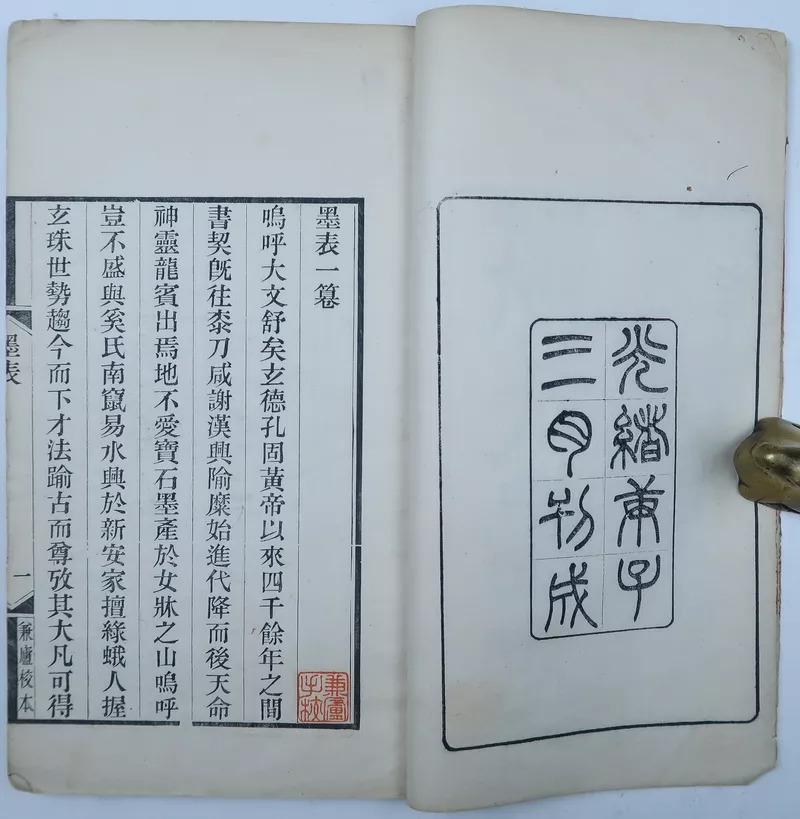 光緒庚子
三月刊成
墨表一篹
兼廬
手校
嗚呼大文舒矣玄德孔固黃帝以來四千餘年之閒
書契旣往桼刀咸謝漢興隃糜始進代降而後天命
神靈龍賓出焉地不愛寶石墨產於女牀之山嗚呼
豈不盛與奚氏南竄易水興於新安家擅綠蛾人握
玄珠世勢趨今而下才法踰古而尊攷其大凡可得
墨表
一
兼廬校本